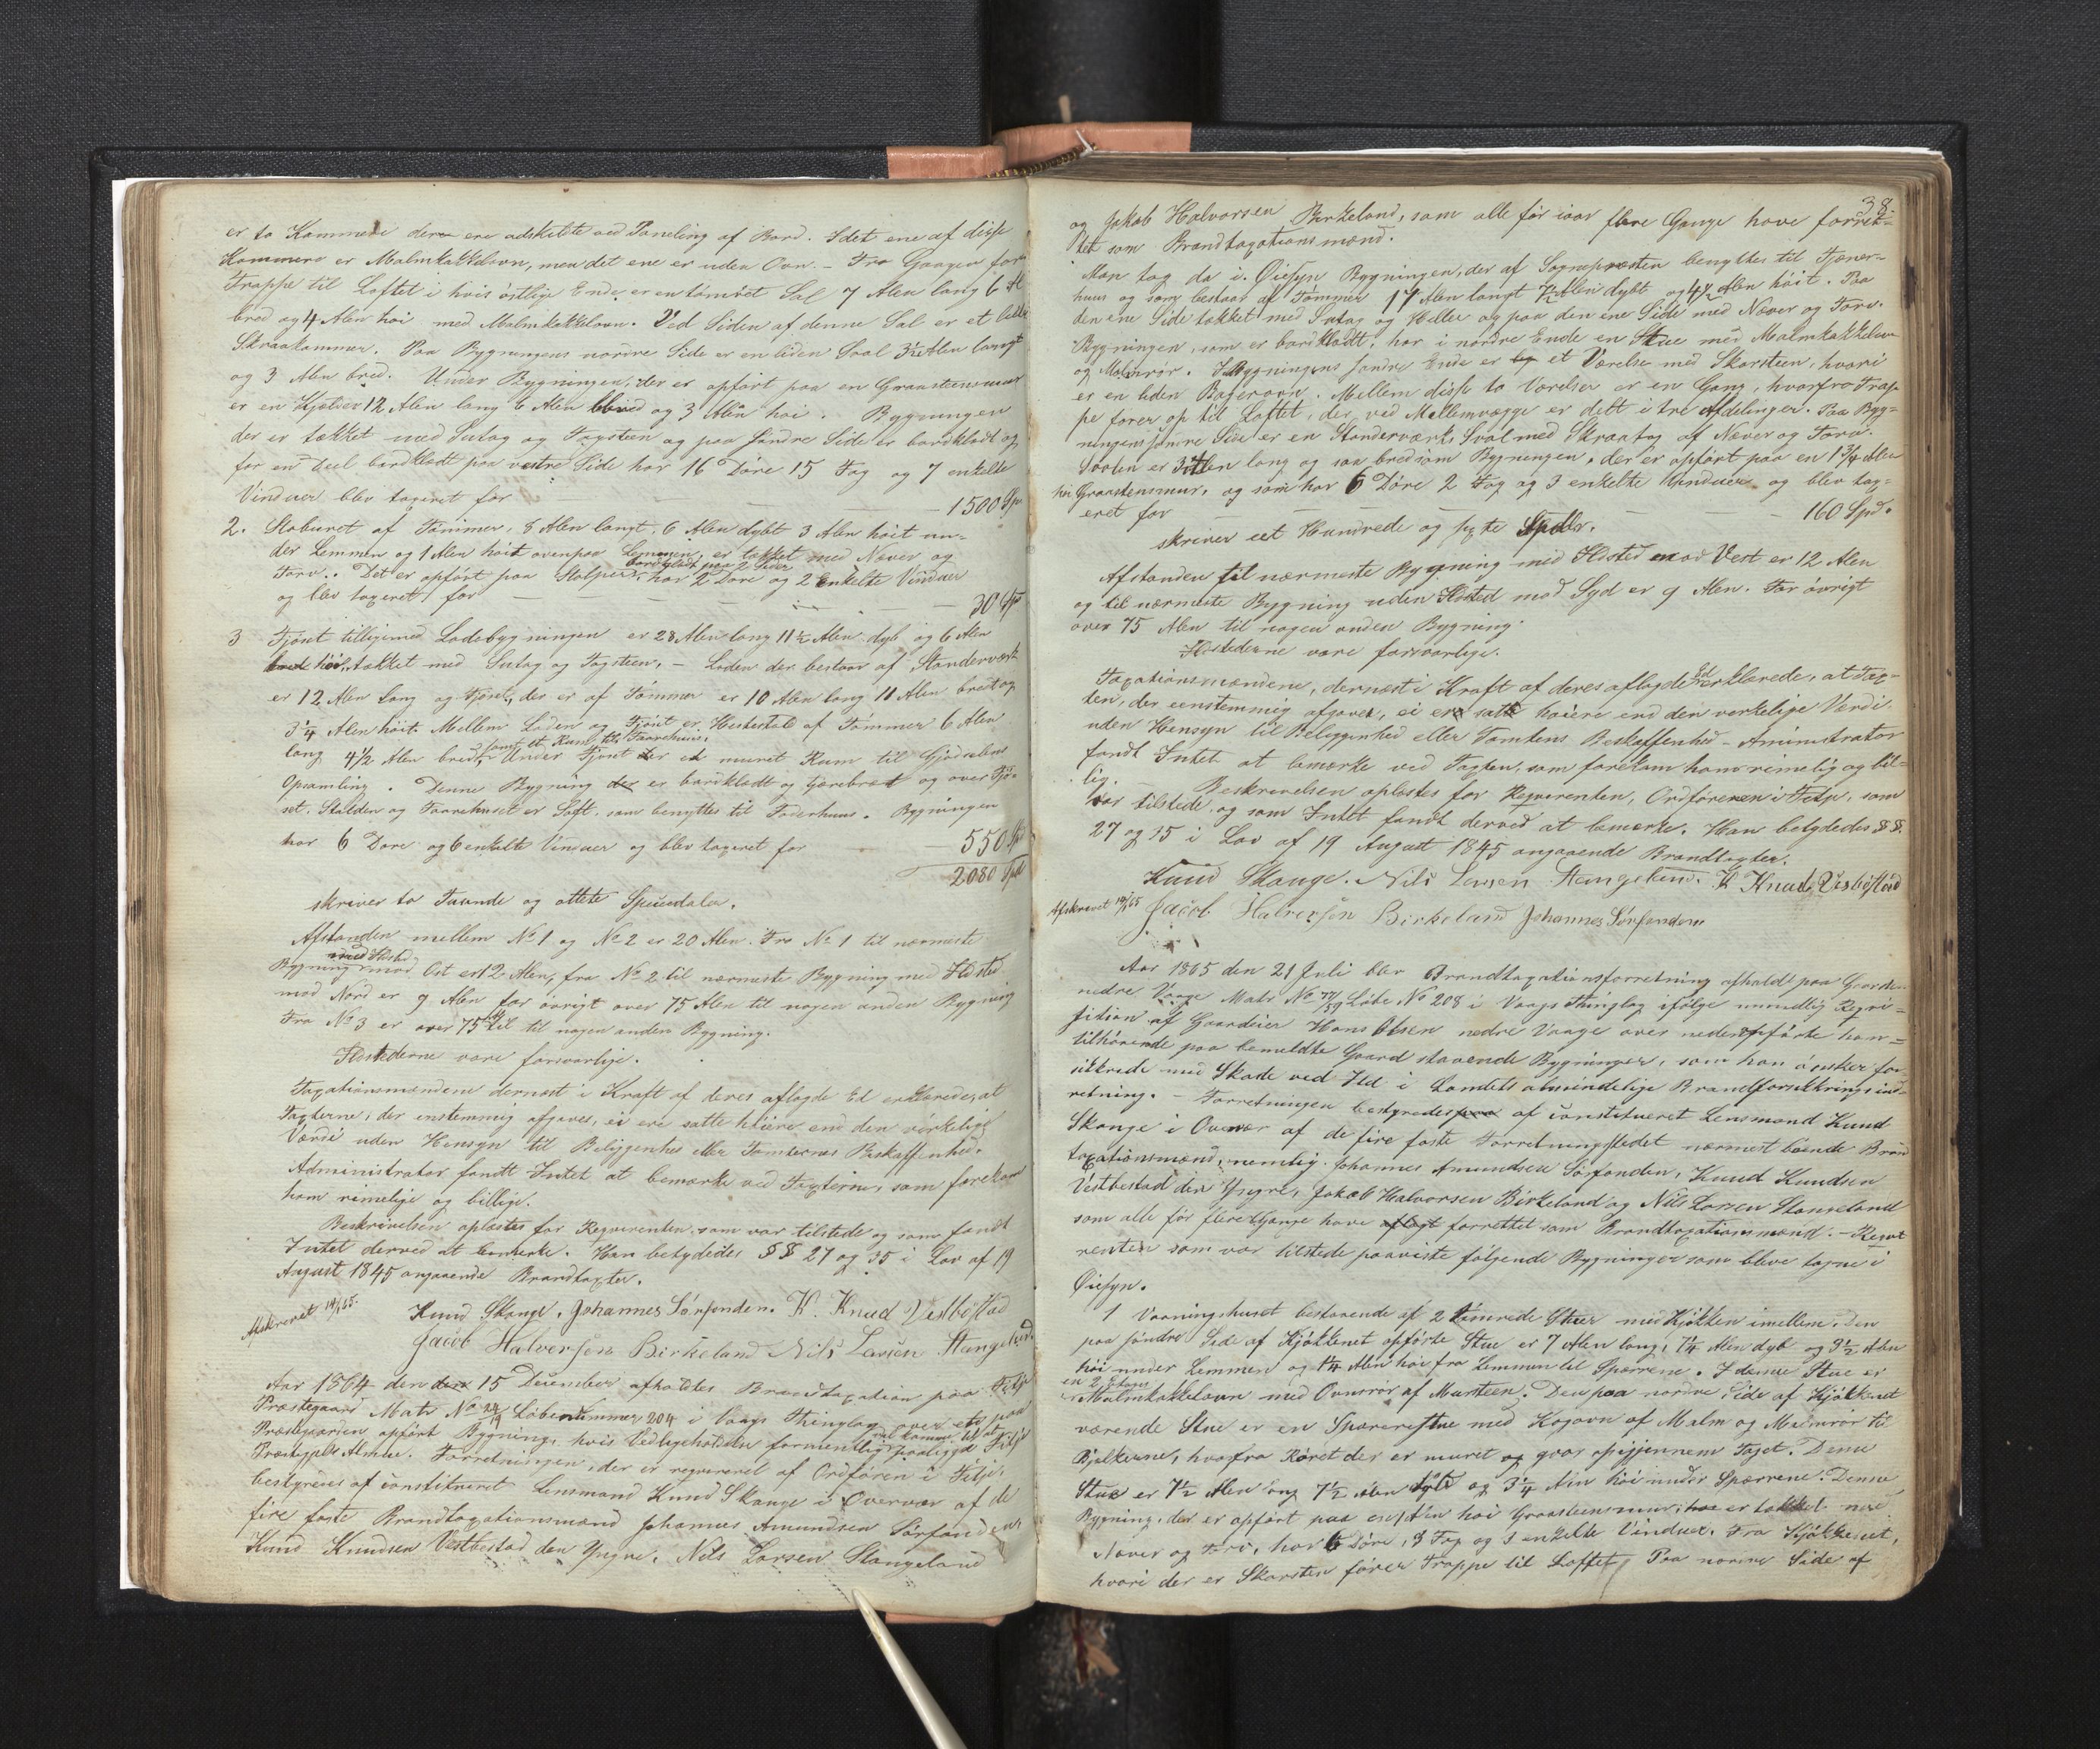 er to Kammere der ere adskilte ved Paneling af Bord. I det ene af disse
Kammere er Malmkakkelovn, men det ene er uden Ovn. - Fra Gangen fører
Trappe til Loftet i hvis östlige Ende er en tömret Sal 7 Alen lang 6 Al
bred og 4 Alen höi med Malmkakkelovn. Ved Siden af denne Sal er et lidet
Skraakammer. Paa Bygningens nordre Side er en liden Sval 3½ Alen langt
og 3 Alen bred. Under Bygningen, der er opfört paa en Graasteensmuur
er en Kjelder 12 Alen lang 6 Alen bred og 3 Alen höi. Bygningen
der er tækket med Sutag og Tagsteen og paa Söndre Side er bordklædt og
for en Deel bordklædt paa vestre Side har 16 Döre 15 Fag og 7 enkelte
Vinduer blev taxeret for — — — 1500 Spd
2. Staburet af Tömmer, 8 Alen langt, 6 Alen dybt 3 Alen höit un-
der Lemmen og 1 Alen höit ovenpaa Lemmen, er tækket med Næver og
Torv. Det er opfört paa Stolper, bordklædt paa 2 Sider har 2 Döre og 2 enkelte Vinduer
og blev taxeret for — — — 30 Spd
3 Fjöset tilligemed Ladebygningen er 28 Alen lang 11½ Alen dyb og 6 Alen
höi, tækket med Sutag og Tagsteen, - Laden der bestaar af Standerværk
er 12 Alen lang og Fjöset, der er af Tömmer er 10 Alen lang 11 Alen bredt og
3¼ Alen höit. Mellem Laden og Fjöset er Hestestald af Tömmer 6 Alen
lang 4½ Alen bred, samt et Rum til Faarehuus. Under Fjöset er et muret Rum til Gjödselens
Opsamling. Denne Bygning er bordklædt og Gjærebræt og over Fjö-
set, Stalden og Faarehuset er Loft, som benyttes til Foderhuus. Bygningen
har 6 Döre og 6 enkelte Vinduer og blev taxeret for 550 Spd
2080 Spd
skriver to Tusinde og ottete Speciedaler.
Afstanden mellem No 1 og No 2 er 20 Alen. Fra No 1 til nærmeste
Bygning med Ildsted mod Öst er 12 Alen, fra No 2 til nærmeste Bygning med Ildsted
mod Nord er 9 Alen for övrigt over 75 Alen til nogen anden Bygning
Fra No 3 er over 75 Al til nogen anden Bygning.
Ildstederne vare forsvarlige.
Taxationsmændene dernæst i Kraft af deres aflagde Ed erklærede, at
Taxterne, der enstemmig afgaves, ei ere satte höiere end den virkelige
Værdi uden Hensyn til Beliggenhed eller Tomternes Beskaffenhed.
Administrator fandt Intet at bemærke ved Taxterne, som forekom
ham rimelige og billige.
Beskrivelsen oplæstes for Reqvirenten som var tilstede og som fandt
Intet derved at bemærke. Han betydedes §§ 27 og 35 i Lov af 19
August 1845 angaaende Brandtaxter.
Afskrevet 14/1 65. Knud Skange, Johannes Sörfonden. K. Knud Vestböstad
Jacob Halversen Birkeland Nils Larsen Stangeland
Aar 1864 den 15 December afholdtes Brandtaxation paa Fitje
Præstegaard Matr No Löbenummer 204 i Vaags Thinglag over en paa
Præstegaarden opfört Bygning, hvis Vedligeholdelse formentlig vil komme til at paaligge Fitje
Præstegjelds Almue. Forretningen, der er reqvireret af Ordföreren i Fitje,
bestyredes af constitueret Lensmand Knud Skange i Overvær af de
fire faste Brandtaxationsmænd Johannes Amundsen Sörfonden,
Knud Knudsen Vestbøstad den Yngre, Nils Larsen Stangeland
38.
og Jakob Halvorsen Birkeland, som alle för iaar flere Gange have forret-
tet som Brandtaxationsmænd.
Man tog da i Öiesyn Bygningen, der af Sognepræsten benyttes til Tjener-
huus og som bestaar af Tömmer 17 Alen langt 7½ Alen dybt og 4½ Alen höit. Paa
den ene Side tækket med Sutag og Heller og paa den ene Side med Næver og Torv.
Bygningen, som er bordklædt, har i nordre Ende en Stue med Malmkakkelovn
og Malmrör. I Bygningens söndre Ende er et Værelse med Skorsteen, hvori
er en liden Bagerovn. Mellem disse to Værelser er en Gang, hvorfra Trap-
pe förer op til Loftet, der ved Mellemvægge er delt i tre Afdelinger. Paa Byg-
ningens söndre Side er en Standerværks Sval med Skraatag af Næver og Torv.
Svalen er 3 Alen lang og saa bred som Bygningen, der er opfört paa en 1¾ Alen
höi Graasteensmur, og som har 6 Döre 2 Fag og 3 enkelte Vinduer og blev tax-
eret for — — — 160 Spd.
skriver eet Hundrede og sexte Spdlr.
Afstanden til nærmeste Bygning med Ildsted mod Vest er 12 Alen
og til nærmeste Bygning uden Ildsted mod Syd er 9 Alen. For övrigt
over 75 Alen til nogen anden Bygning.
Ildstederne vare forsvarlige.
Taxationsmændene, dernæst i Kraft af deres aflagde Ed erklærede, at Tax-
ten, der eenstemmig afgaves, ei er satt höiere end den verkelige Værdi,
uden Hensyn til Beliggenhed eller Tomtens Beskaffenhed - Aministrator
fandt Intet at bemærke ved Taxten, som forekom ham rimelig og bil-
lig. Beskrivelsen oplæstes for Reqvirenten, Ordföreren i Fitje, som
var tilstede og som Intet fandt derved at bemærke. Han betydedes §§
27 og 35 i Lov af 19 August 1845 angaaende Brandtaxter.
Knud Skange. Nils Larsen Stangeland. K Knud Vesböstad
Afskrevet 14/1 65 Jacob Halversen Birkeland Johannes Sörfonden
Aar 1865 den 21 Juli blev Brandtaxationsforretning afholdt paa Gaarden
nedre Vaage Matr No Löbe No 208 i Vaags Thinglag ifölge mundtlig Reqvi-
sition af Gaardeier Hans Olsen nedre Vaage over nedenanförte ham
tilhörende paa bemeldte Gaard staaende Bygninger, som han önsker for-
sikkrede mod Skade ved Ild i Landets almindelige Brandforsikkringsind-
retning. - Forretningen bestyredes af constitueret Lensmand Knud
Skange i Overvær af de fire faste Forretningsstedet nærmest boende Brand
taxationsmænd, nemlig Johannes Amundsen Sörfonden, Knud Knudsen
Vestbøstad den Yngre, Jakob Halvorsen Birkeland og Nils Larsen Stangeland
som alle för flere Gange have aflagt forrettet som Brandtaxationsmænd. - Reqvi
renten som var tilstede paaviste fölgende Bygninger som bleve tagne i
Öiesyn.
1 Vaaningshuset bestaaende af 2 tömrede Stuer med Kjökken imellem. Den
paa söndre Side af Kjökkenet opförte Stue er 7 Alen lang, 7¼ Alen dyb og 3½ Alen
höi under Lemmen og 1¼ Alen höi fra Lemmen til Sparrene. I denne Stue er
en 2 Etages Malmkakkelovn med Ovnsrör af Mursteen. Den paa nordre Side af Kjökkenet
værende Stue er en Sparrerstue med Kogovn af Malm og Malmrör til
Bjelkerne, hvorfra Röret der er muret og gaar opigjennem Taget. Denne
Stue er 7½ Alen lang 7½ Alen dyb og 3¼ Alen höi under Sparrene. Denne
Bygning, der er opfört paa en 1 Alen höi Graasteensmur, er tækket med
Næver og Torv, har 6 Döre, 8 Fag og 3 enkelte Vinduer. Fra Kjökkenet,
hvori der er Skorsten förer Trappe til Loftet. Paa nordre Side af